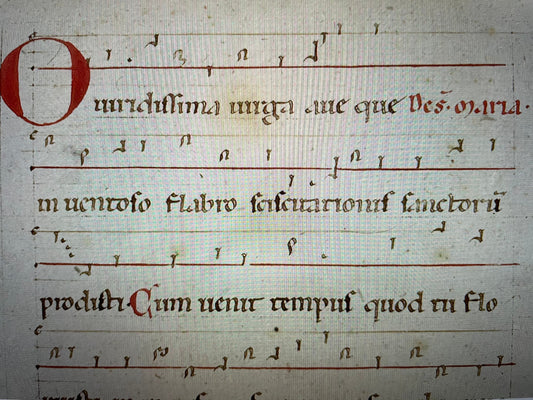 O uiridissima uirga aue que Des̄. maria.
in uentoso flabro sciscitationis sanctorū
prodisti. Cum uenit tempus quod tu flo